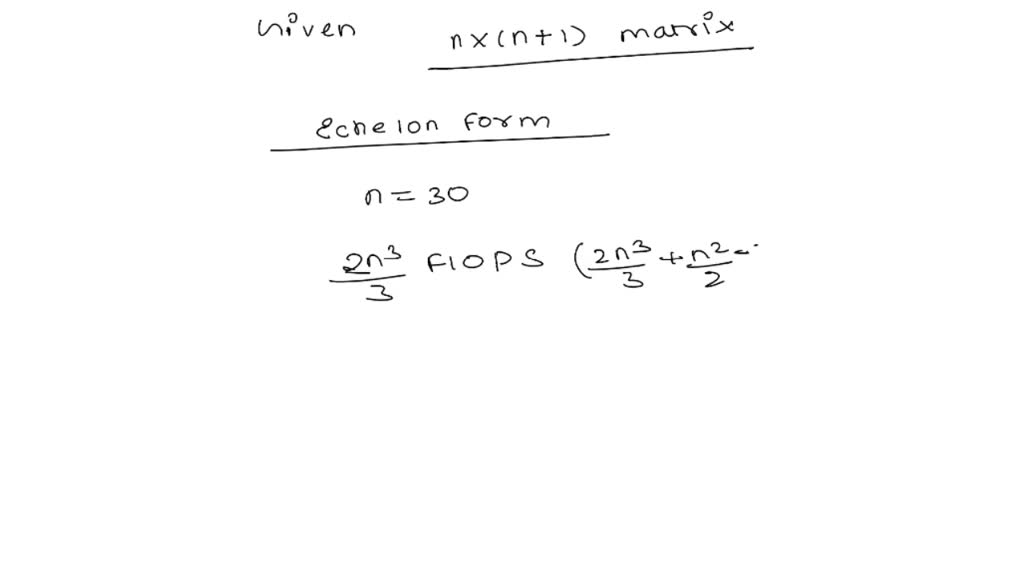 Given n×(n+1) matrix
Echelon Form
n = 30
2n³/3 FlOPS (2n³/3 + n²/2 -